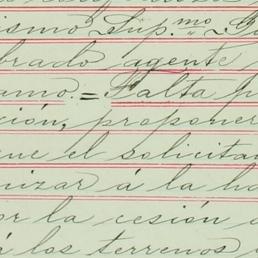 ismo Sup.mo
brado agente p
amo. = Falta p
ción, proponer
ue el solicitan
nizar á la ha
or la cesión d
á los terrenos